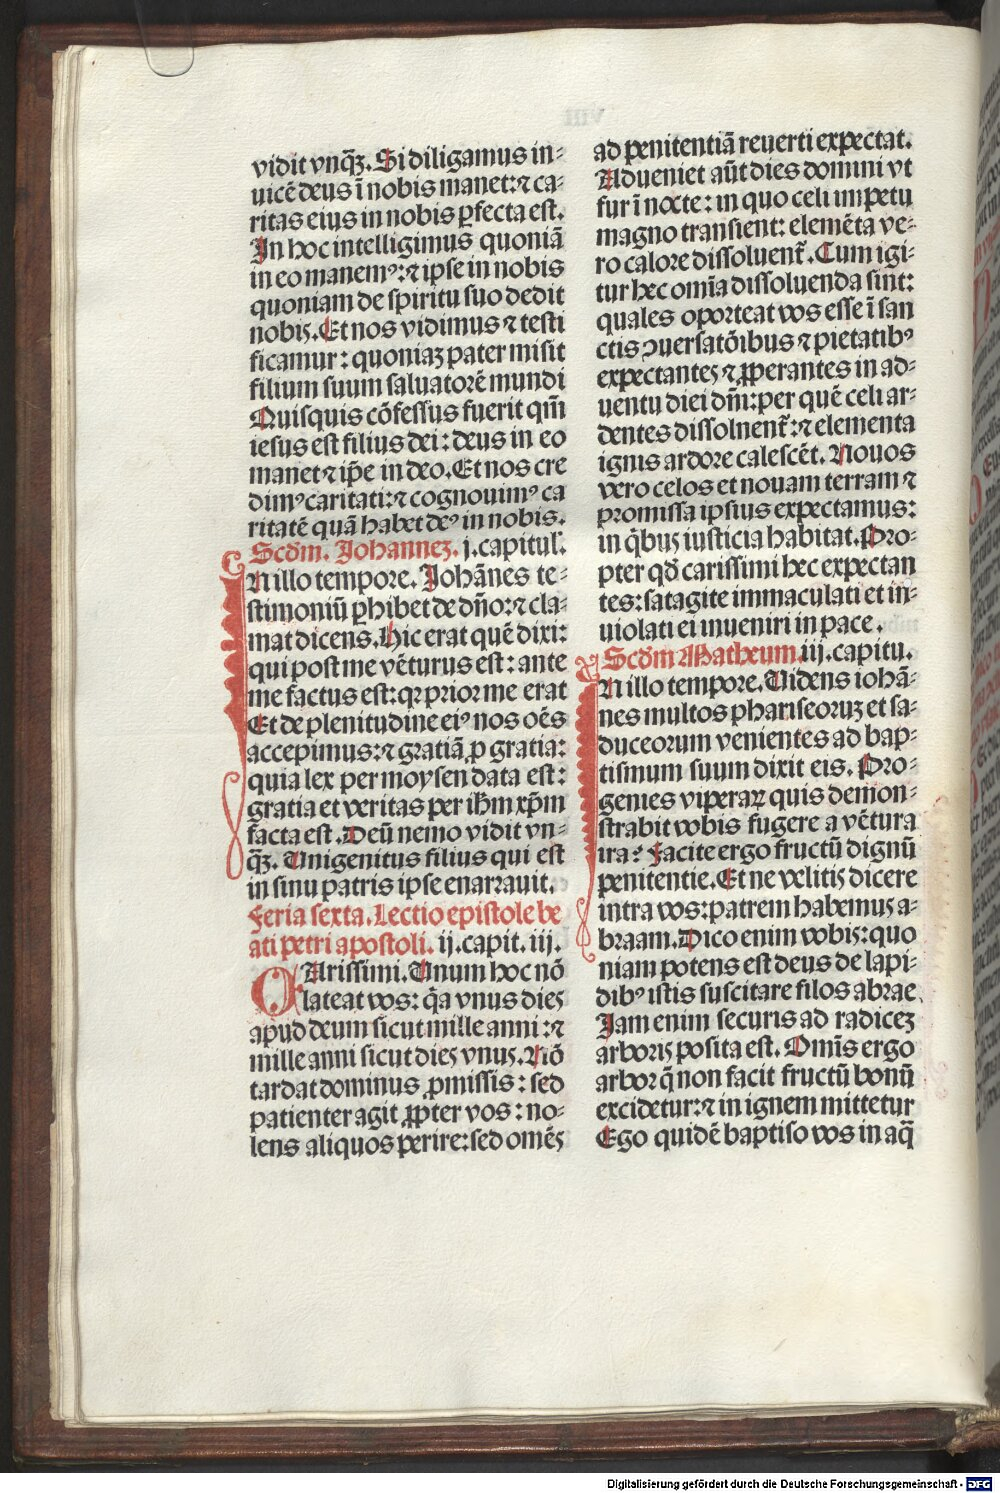 vidit vnq̃ꝫ. Si diligamus in⸗
uicē deus ī nobis manet: ⁊ ca⸗
ritas eius in nobis ꝑfecta est.
In hoc intelligimus quoniā
in eo manemꝰ: ⁊ ipse in nobis
quoniam de spiritu suo dedit
nobis. Et nos vidimus ⁊ testi
ficamur: quoniaꝫ pater misit
filium suum saluatorē mundi
Quisquis cōfessus fuerit qm̄
iesus est filius dei: deus in eo
manet ⁊ ip̄e in deo. Et nos cre
dimꝰ caritati: ⁊ cognouimꝰ ca
ritatē quā habet deꝰ in nobis.
Scd̄m. Johanneꝫ. j. capitul̓.
IN illo tempore. Johānes te⸗
stimoniū ꝑhibet de dn̄o: ⁊ cla⸗
mat dicens. Hic erat quē dixi:
qui post me vēturus est: ante
me factus est: qꝛ prior me erat
Et de plenitudine eiꝰ nos oēs
accepimus: ⁊ gratiā ꝓ gratia:
quia lex per moysen data est:
gratia et veritas per ih̄m xp̄m
facta est. Deū nemo vidit vn⸗
q̄ꝫ. Unigenitus filius qui est
in sinu patris ipse enarrauit.
Feria sexta. Lectio epistole be
ati petri apostoli. ij. capit. iij.
CArissimi. Unum hoc nō
lateat vos: q̄a vnus dies
apud deum sicut mille anni: ⁊
mille anni sicut dies vnus. Nō
tardat dominus ꝓmissis: sed
patienter agit ꝓpter vos: no⸗
lens aliquos perire: sed omēs
ad penitentiā reuerti expectat.
Adueniet aūt dies domini vt
fur ī nocte: in quo celi impetu
magno transient: elemēta ve⸗
ro calore dissoluent̄. Cum igi⸗
tur hec om̄ia dissoluenda sint:
quales oporteat vos esse ī san
ctis ꝯuersatōibus ⁊ pietatibꝰ
expectantes ⁊ ꝓperantes in ad⸗
uentu diei dn̄i: per quē celi ar⸗
dentes dissolnent̄: ⁊ elementa
ignis ardore calescēt. Nouos
vero celos et nouam terram ⁊
promissa ipsius expectamus:
in q̇bus iusticia habitat. Pro⸗
pter qd̄ carissimi hec expectan
tes: satagite immaculati et in⸗
uiolati ei inueniri in pace.
Scd̄m Matheum. iij. capitu.
IN illo tempore. Uidens iohā⸗
nes multos phariseoruꝫ et sa⸗
duceorum venientes ad bap⸗
tismum suum dixit eis. Pro⸗
genies viperaꝝ quis demon⸗
strabit vobis fugere a vētura
ira? Facite ergo fructū dignū
penitentie. Et ne velitis dicere
intra vos: patrem habemus a⸗
braam. Dico enim vobis: quo
niam potens est deus de lapi⸗
dibꝰ istis suscitare filos abrae.
Jam enim securis ad radiceꝫ
arboris posita est. Omīs ergo
arbor q̄ non facit fructū bonū
excidetur: ⁊ in ignem mittetur
Ego quidē baptiso vos in aq̄
Digitalisierung gefördert durch die Deutsche Forschungsgemeinschaft - DFG